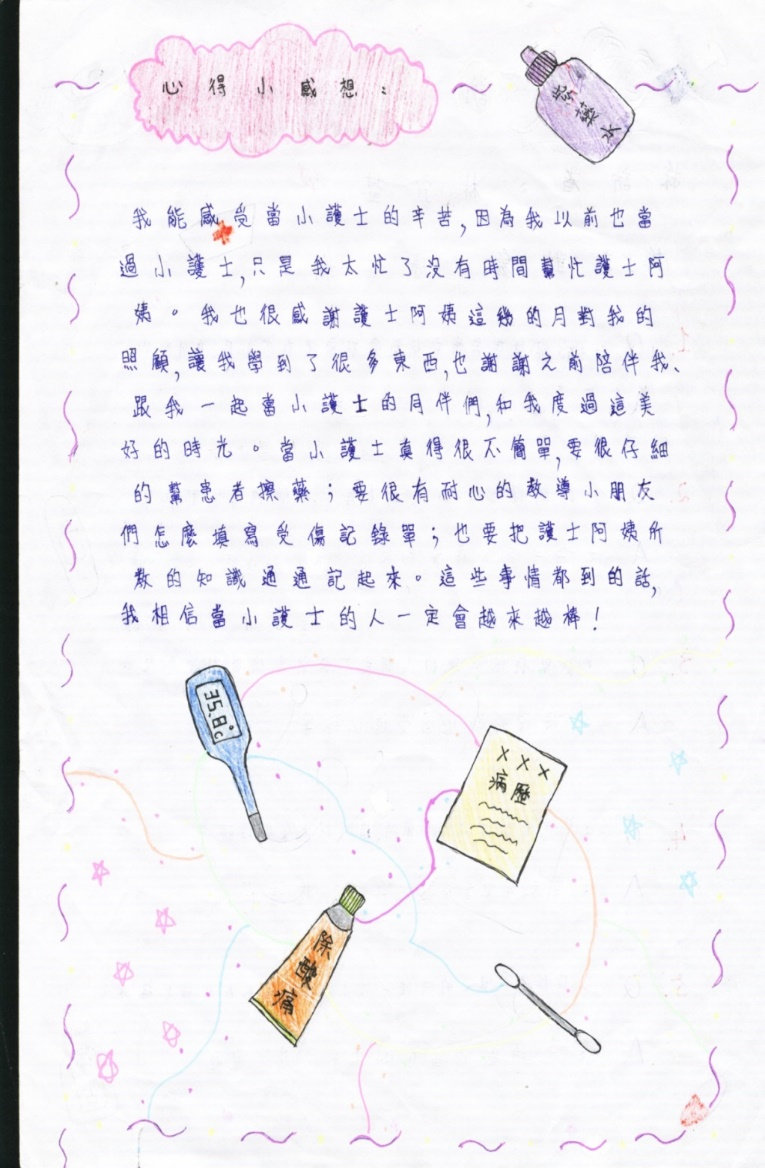 心得小感想：
藥水
我能感受當小護士的辛苦,因為我以前也當
過小護士,只是我太忙了沒有時間幫忙護士阿
姨。我也很感謝護士阿姨這幾的月對我的
照顧,讓我學到了很多東西,也謝謝之前陪伴我、
跟我一起當小護士的同伴們,和我度過這美
好的時光。當小護士真得很不簡單,要很仔細
的幫患者擦藥；要很有耐心的教導小朋友
們怎麼填寫受傷記錄單；也要把護士阿姨所
教的知識通通記起來。這些事情都到的話,
我相信當小護士的人一定會越來越棒！
35.8°c
XXX
病歷
除酸痛